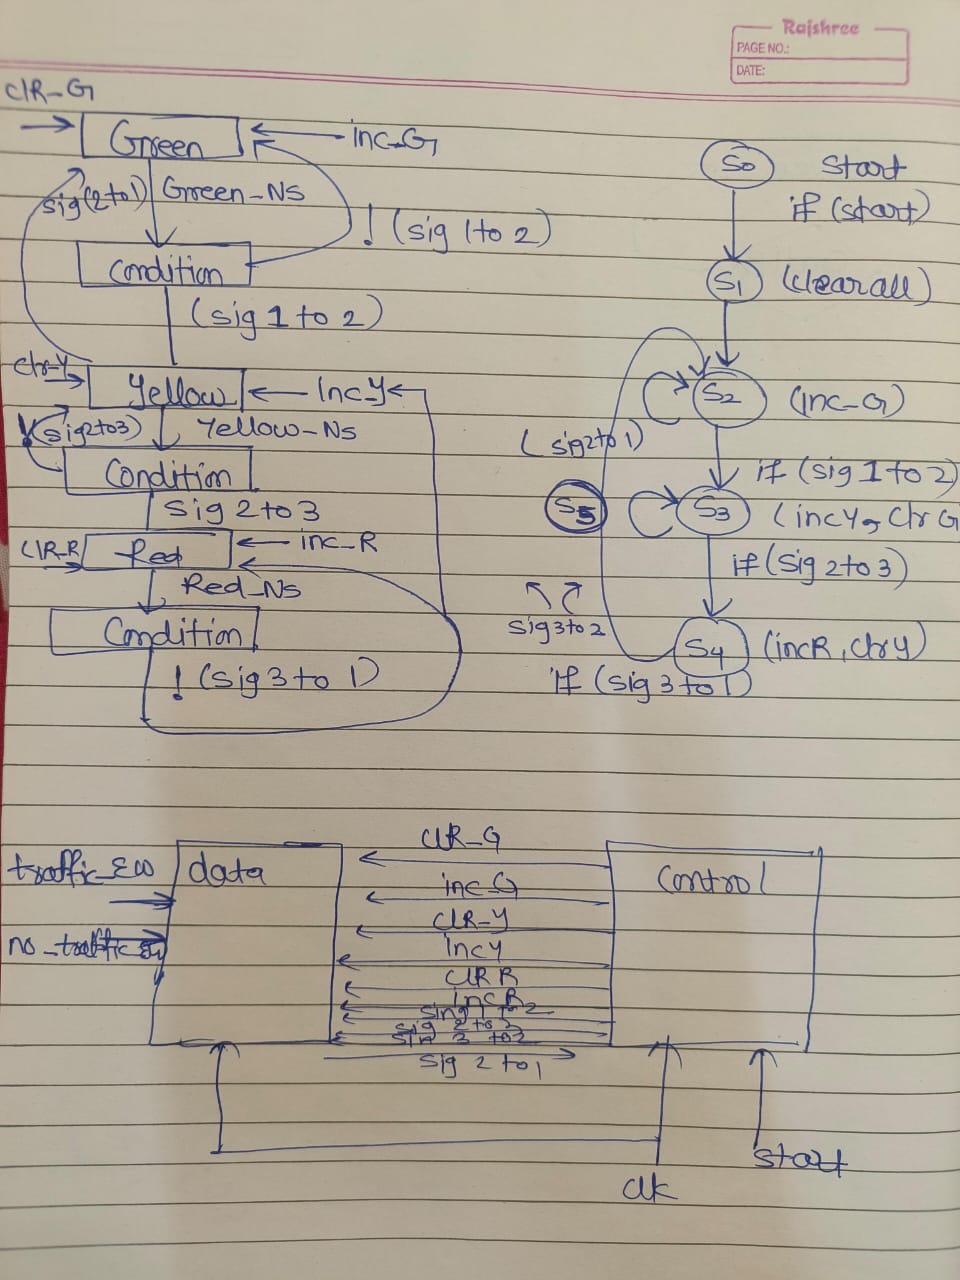 Rajshree
PAGE NO.:
DATE:
ClR_G
Green
inc_G
sig(2 to 1)
Green_Ns
! (sig 1 to 2)
Condition
(sig 1 to 2)
clr-Y
Yellow
Inc_Y
!(sig2to3)
Yellow-Ns
Condition
sig 2 to 3
ClR_R
Red
inc_R
Red_Ns
Condition
! (sig 3 to 1)
S0
start
if (start)
S1
(clear all)
S2
(inc_G)
(sig2to1)
if (sig 1 to 2)
S5
S3
(incY, Clr G
if (sig 2 to 3)
sig 3 to 2
S4
(incR, clr Y)
if (sig 3 to 1)
traffic_EW
data
no_traffic
ClR_G
inc_G
ClR_Y
incY
ClR R
incR
sing 1 to 2
sig 2 to 3
sig 3 to 2
sig 2 to 1
Control
clk
start